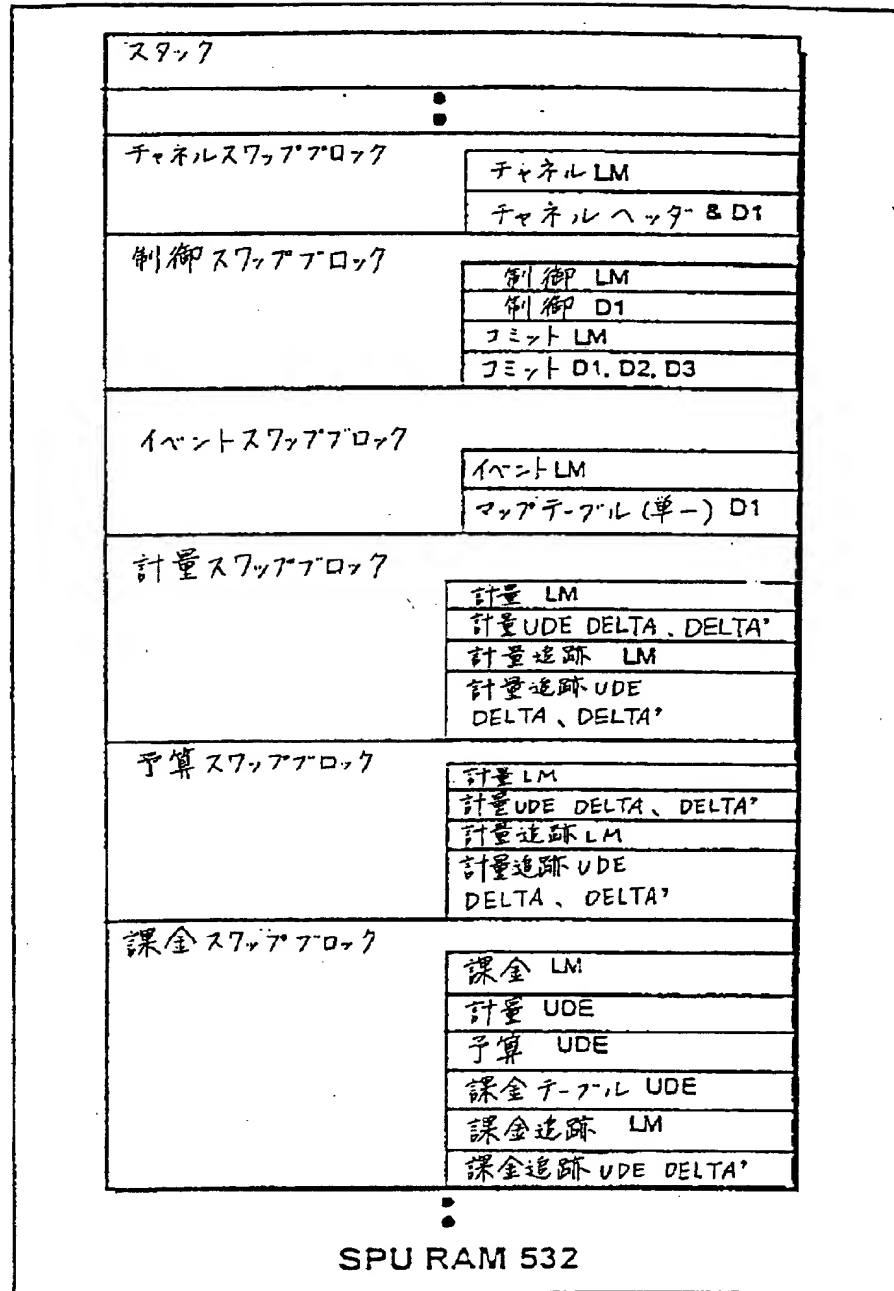 スタック
チャネルスワップブロック
チャネル LM
チャネル ヘッダ & D1
制御スワップブロック
制御 LM
制御 D1
コミット LM
コミット D1. D2. D3
イベントスワップブロック
イベント LM
マップテーブル (単一) D1
計量スワップブロック
計量 LM
計量UDE DELTA、DELTA'
計量追跡 LM
計量追跡 UDE
DELTA、DELTA'
予算スワップブロック
計量 LM
計量UDE DELTA、DELTA'
計量追跡 LM
計量追跡 UDE
DELTA、DELTA'
課金スワップブロック
課金 LM
計量 UDE
予算 UDE
課金テーブル UDE
課金追跡 LM
課金追跡 UDE DELTA'
SPU RAM 532